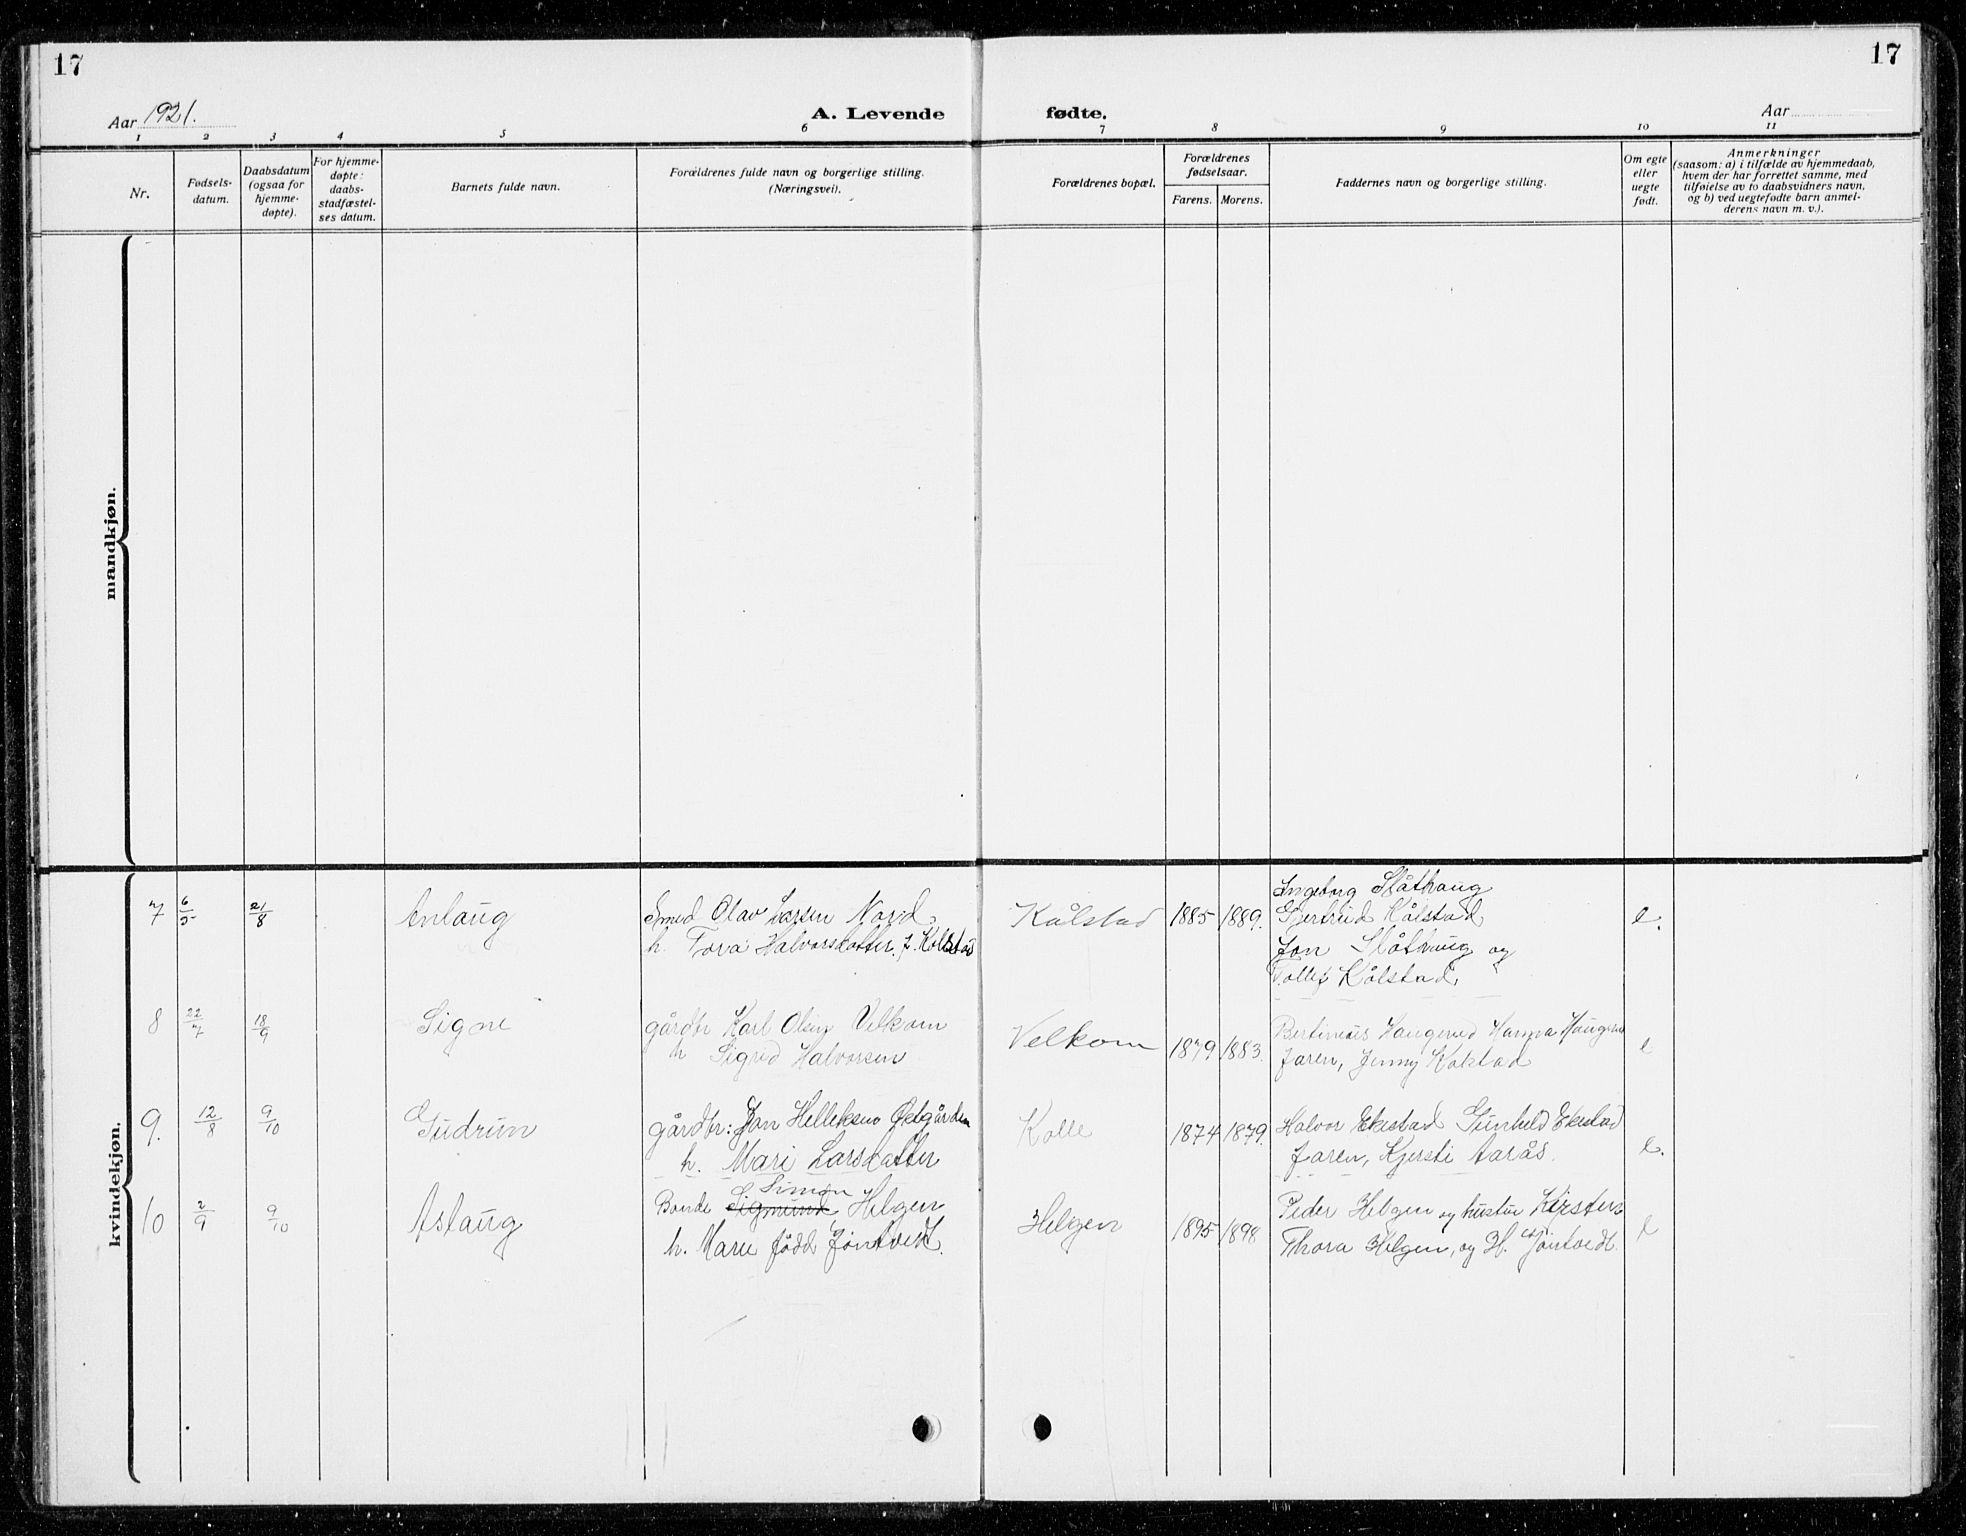 17
17
Aar 1921.
A. Levende fødte.
Aar
1 2 3 4 5 6 7 8 9 10 11
Nr.
Fødsels-
datum.
Daabsdatum
(ogsaa for
hjemme-
døpte).
For hjemme-
døpte:
daabs-
stadfæstel-
ses datum.
Barnets fulde navn.
Forældrenes fulde navn og borgerlige stilling.
(Næringsvei).
Forældrenes bopæl.
Forældrenes
fødselsaar.
Farens. Morens.
Faddernes navn og borgerlige stilling.
Om egte
eller
uegte
født.
Anmerkninger
(saasom: a) i tilfælde av hjemmedaab,
hvem der har forrettet samme, med
tilføielse av to daabsvidners navn,
og b) ved uegtefødte barn anmel-
derens navn m. v.).
mandkjøn.
kvindekjøn.
7 6/5 21/8 Anlaug
Smed Olav Larsen Nord
h. Tora Halvorsdatter f. Kolstad
Kålstad 1885 1889.
Ingeborg Slåthaug
Gjertrud Kålstad
Jon Slåthaug og
Tollef Kålstad.
e.
8 22/7 18/9 Signe
gårdbr Karl Olsen Velkom
h Sigrid Halvorsen
Velkom 1879 1883.
Bertinius Haugerud Hanna Haugerud
faren, Jenny Kolstad
e
9. 12/8 9/10 Gudrun
gårdbr: Jon Helleksen
h. Mari Larsdatter
Kolle 1874 1879.
Halvor Ekestad Gunhild Ekestad
faren, Kjersti Aarås.
e.
10 2/9 9/10 Aslaug
Simon
Bonde Sigmund Helgen
h. Marie född Jöntvedt.
Helgen 1895 1898
Peder Helgen og hustru Kirsten
Thora Helgen, og H. Jöntvedt.
e